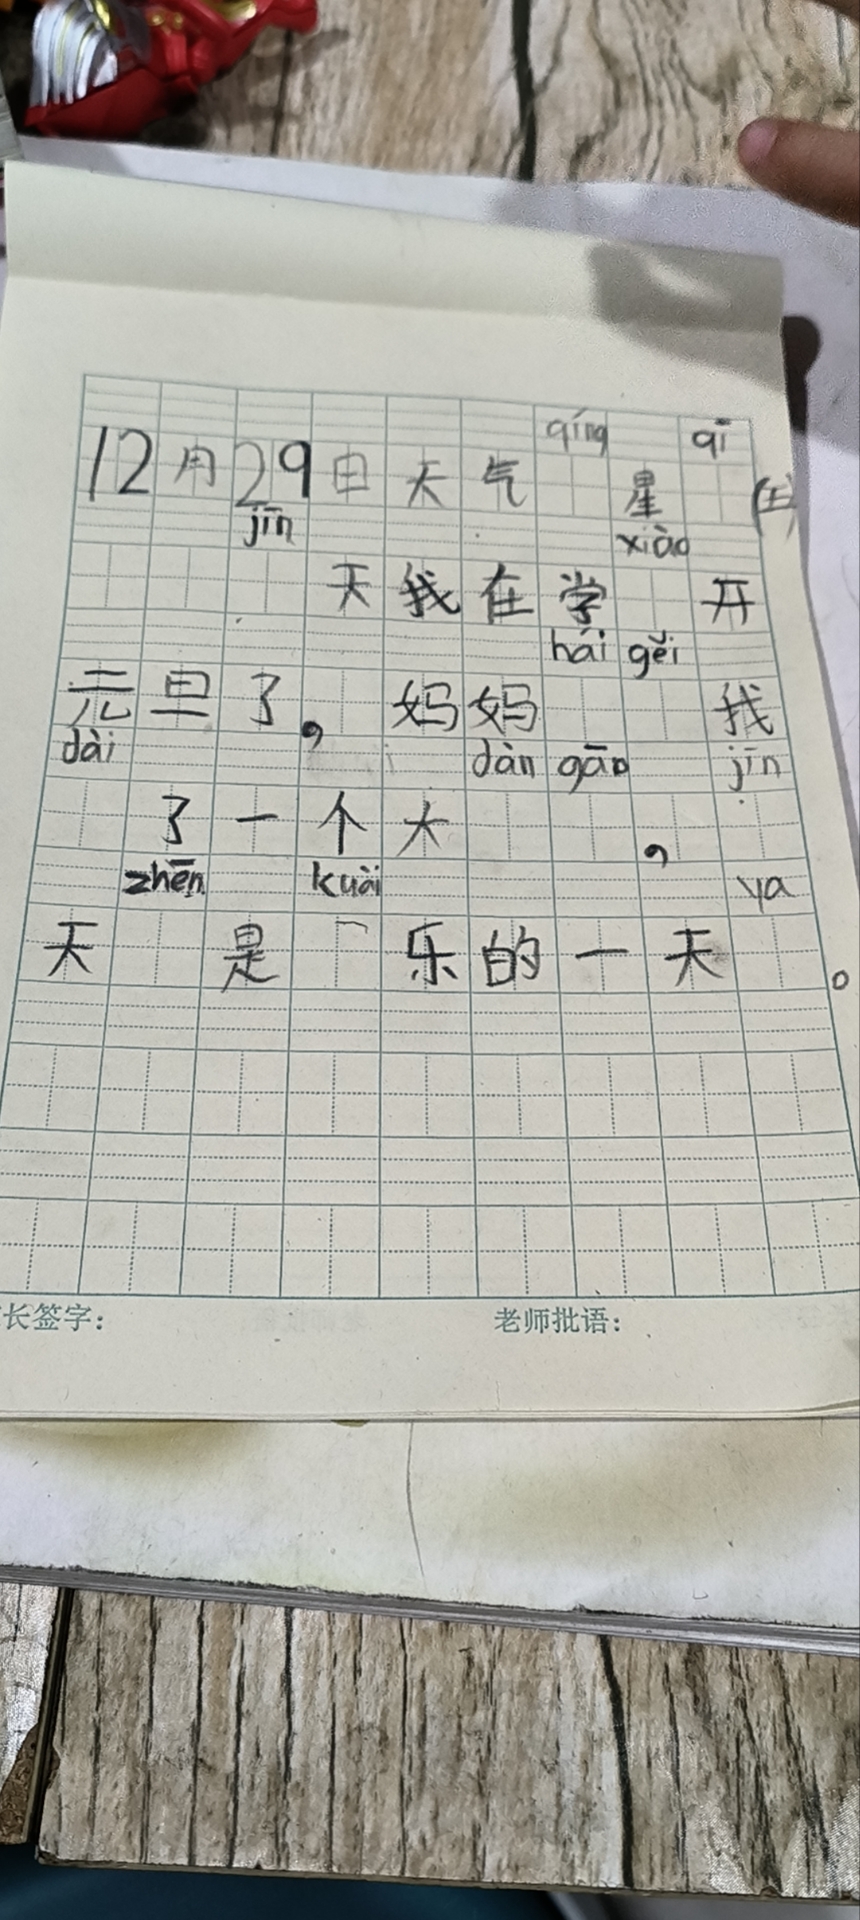 qíng qī
12月29日天气 星 (五)
jīn xiào
天我在学 开
hái gěi
元里了，妈妈 我
dài dàn gāo jīn
了一个大 ，
zhēn kuài ya
天 是 乐的一天 。
长签字： 老师批语：